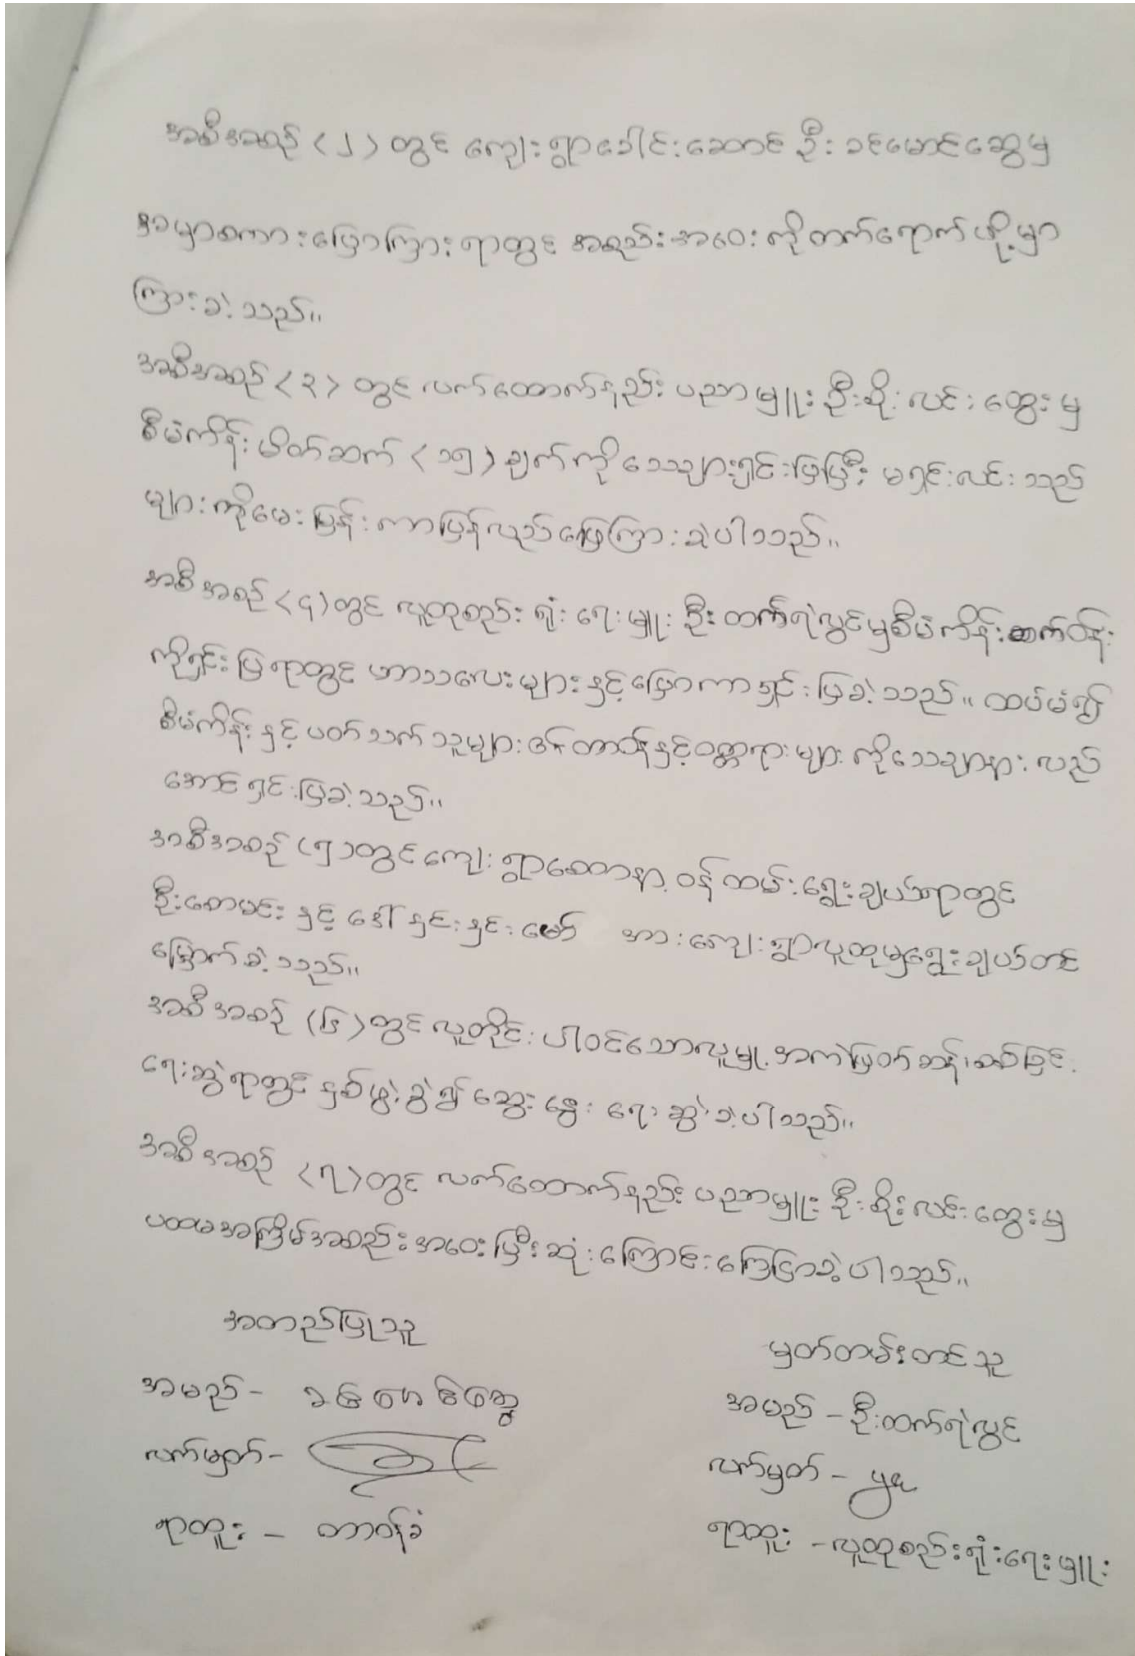 အစီအစဉ် (၂) တွင် ကျေးရွာခေါင်းဆောင် ဦးခင်မောင်ဆွေမှ
အမှာစကားပြောကြားရာတွင် အစည်းအဝေးကိုတက်ရောက်ဖို့မှာ
ကြားခဲ့သည်။
အစီအစဉ် (၃) တွင် လက်ထောက်နည်းပညာမှူး ဦးစိုးလင်းထွေးမှ
စီမံကိန်းမိတ်ဆက် (၁၅) ချက်ကိုသေချာရှင်းပြပြီး မရှင်းလင်းသည်
များကိုမေးမြန်းကာပြန်လည်ဖြေကြားခဲ့ပါသည်။
အစီအစဉ် (၄) တွင် လူထုစည်းရုံးရေးမှူး ဦးထက်ရဲလွင်မှစီမံကိန်းစက်ဝန်း
ကိုရှင်းပြရာတွင် ဟာသလေးများနှင့်ပြောကာရှင်းပြခဲ့သည်။ ထပ်မံ၍
စီမံကိန်းနှင့်ပတ်သက်သူများ၏တာဝန်နှင့်ဝတ္တရားများကိုသေချာနားလည်
အောင်ရှင်းပြခဲ့သည်။
အစီအစဉ် (၅) တွင်ကျေးရွာစေတနာ့ဝန်ထမ်းရွေးချယ်ရာတွင်
ဦးဇော်မင်းနှင့် ဒေါ်နှင်းနှင်းမော် အားကျေးရွာလူထုမှရွေးချယ်တင်
မြှောက်ခဲ့သည်။
အစီအစဉ် (၆) တွင်လူတိုင်းပါဝင်သောလူမှုအကဲဖြတ်ဆန်းစစ်ခြင်း
ရေးဆွဲရာတွင် နှစ်ဖွဲ့ခွဲ၍ဆွေးနွေးရေးဆွဲခဲ့ပါသည်။
အစီအစဉ် (၇) တွင် လက်ထောက်နည်းပညာမှူး ဦးစိုးလင်းထွေးမှ
ပထမအကြိမ်အစည်းအဝေးပြီးဆုံးကြောင်းကြေငြာခဲ့ပါသည်။
အတည်ပြုသူ
မှတ်တမ်းတင်သူ
အမည် - ခင်မောင်ဆွေ
အမည် - ဦးထက်ရဲလွင်
လက်မှတ် -
လက်မှတ် -
ရာထူး - တာဝန်ခံ
ရာထူး - လူထုစည်းရုံးရေးမှူး